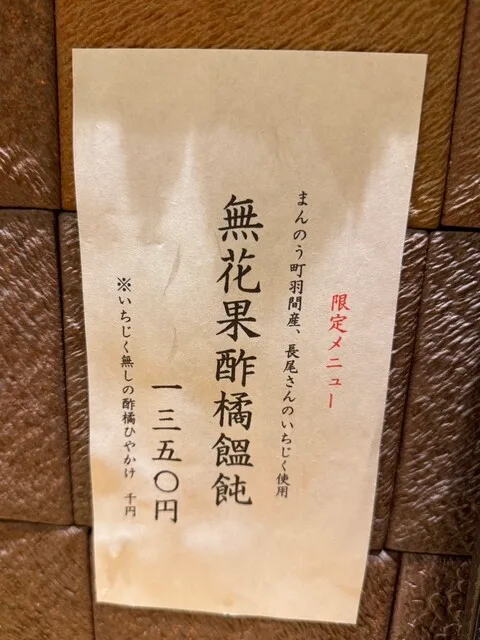 限定メニュー
まんのう町羽間産、長尾さんのいちじく使用
無花果酢橘饂飩
一三五〇円
※いちじく無しの酢橘ひやかけ 千円